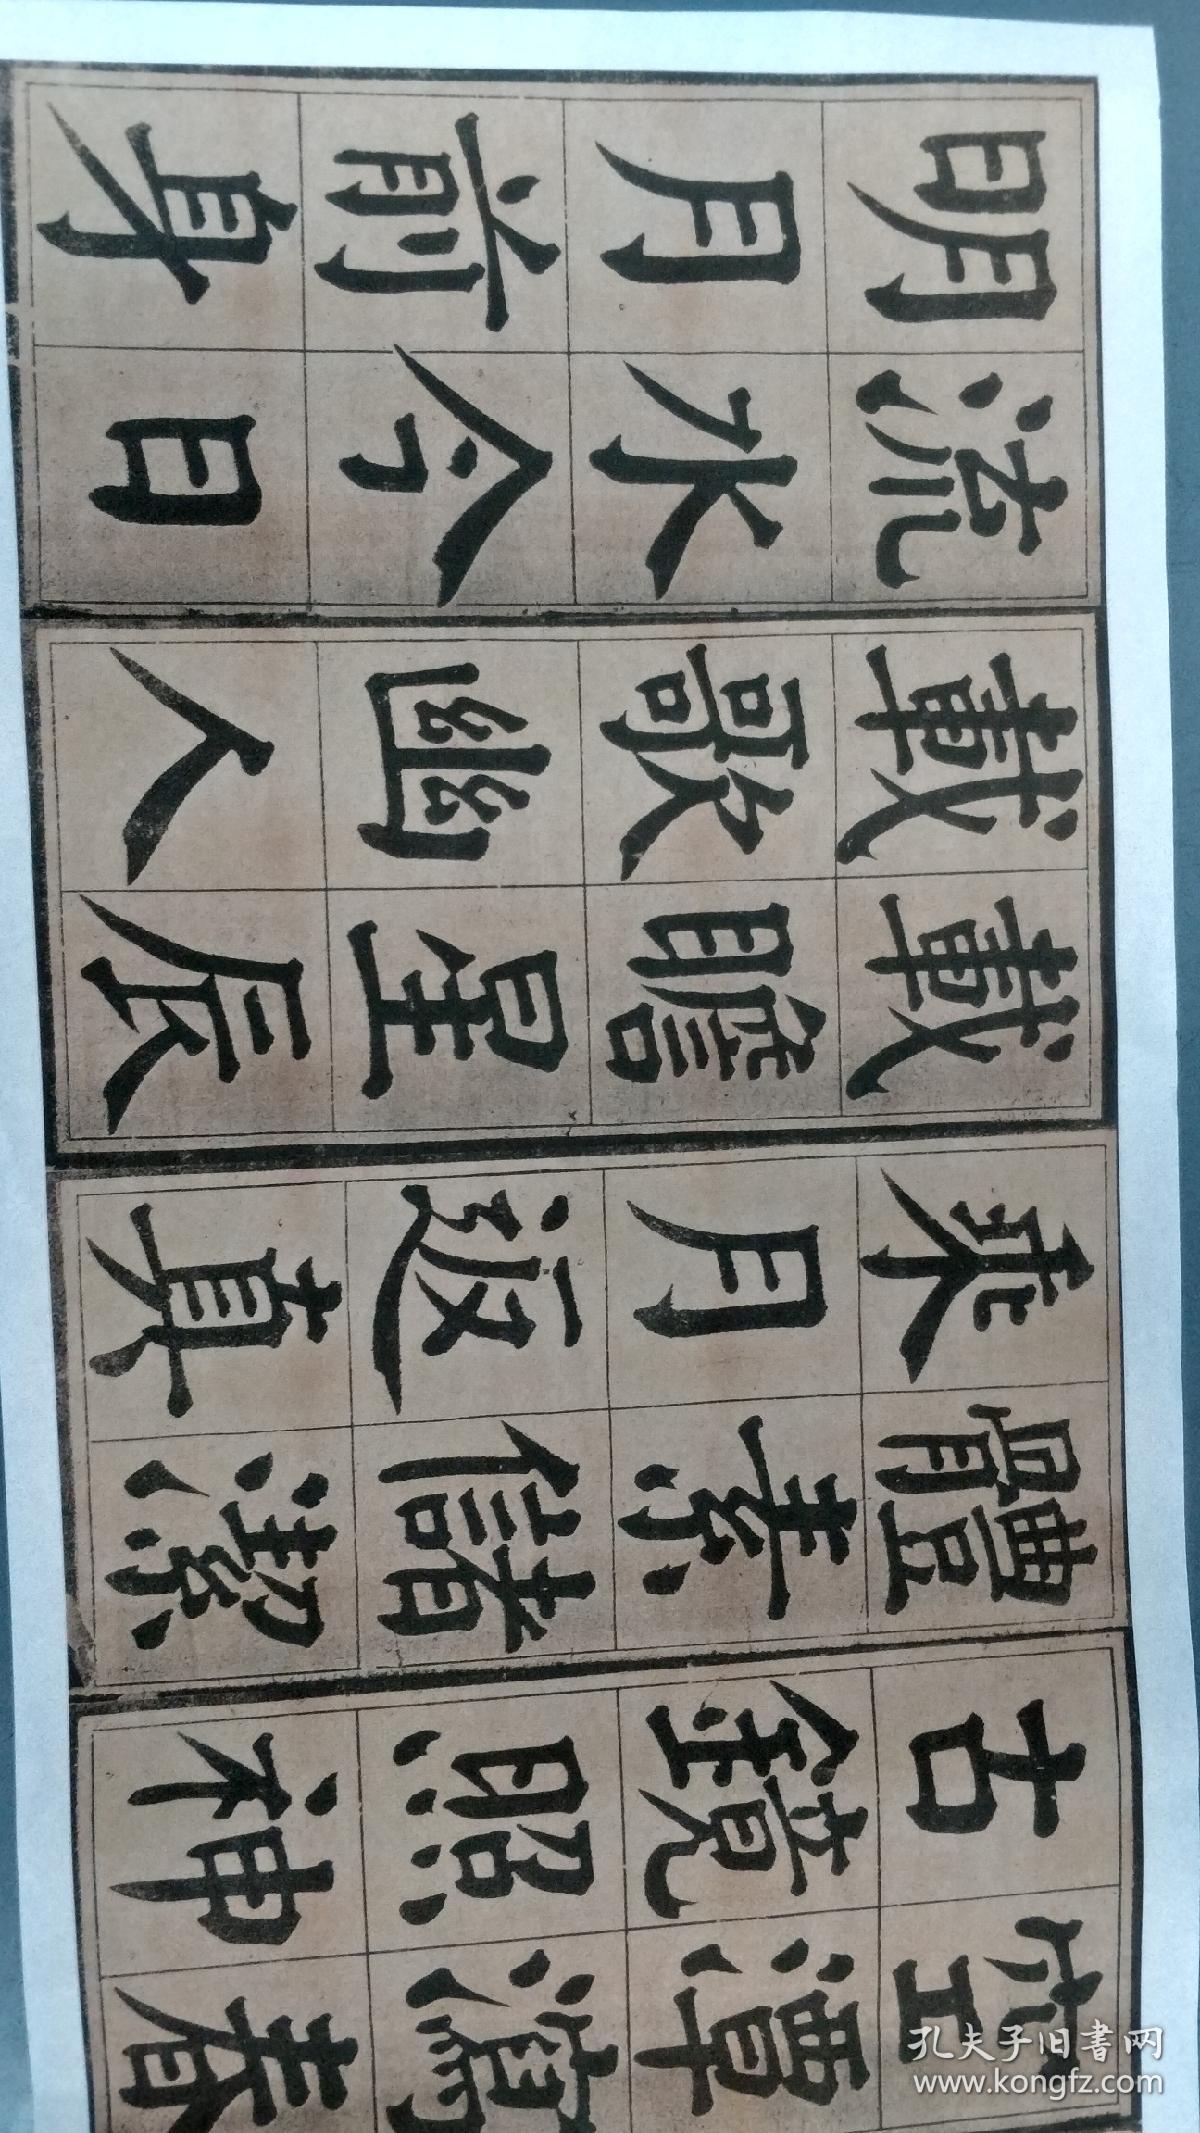 空潭瀉春
古鏡照神
體素儲潔
乘月返真
載瞻星辰
載歌幽人
流水今日
明月前身
孔夫子旧书网
www.kongfz.com